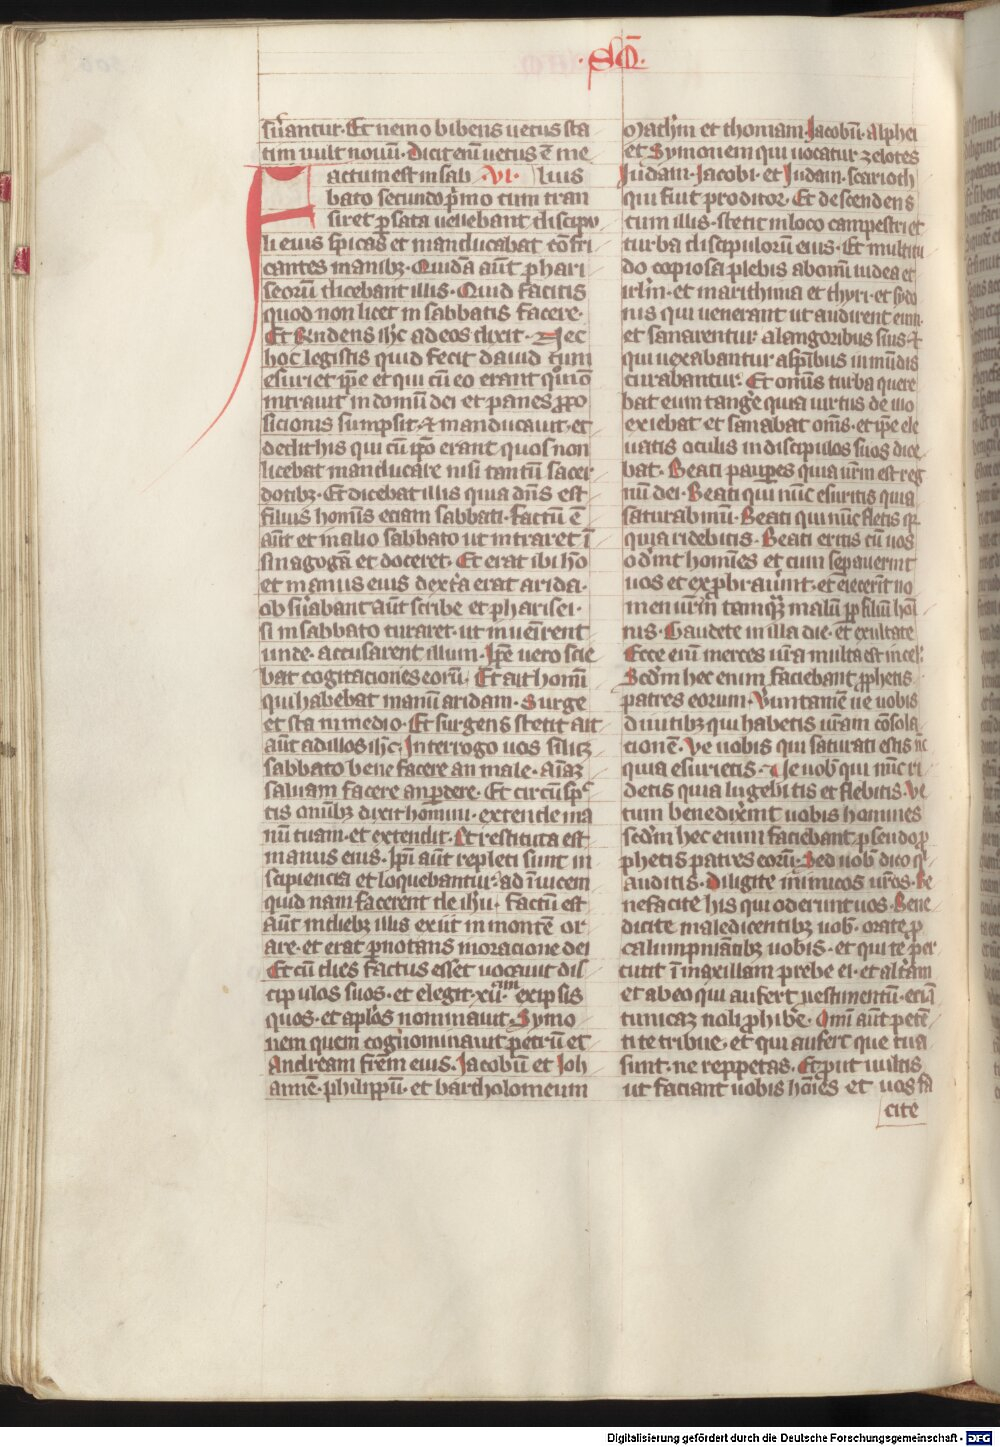 ·Sᷤm̄·
sūantur· Et nemo bibens uetus sta
tim uult nouū· Dicit enī uetus ē me
Factum est in sab ·VI· lius
bato secundo p̄mo cum tran
siret ꝑ sata uellebant discipu
li eius spicas et manducabāt cōfri
cantes manibꝫ· Quidā aūt phari
seorū dicebant illis· Quid facitis
quod non licet in sabbatis facere·
Et R̄ndens ih̄c ad eos dixit· Nec
hoc legistis quid fecit dauid cum
esuriet ip̄e et qui cū eo erant qūo
intrauit in domū dei et panes ꝓpo
sicionis sumpsit· ⁊ manducauit· et
dedit his qui cū ip̄o erant quos non
licebat manducare nisi tantū sacer
dotibꝫ· Et dicebat illis quia dn̄s est
filius hominis eciam sabbati· factū ē
aūt et in alio sabbato ut intraret ī
sinagogā et doceret· Et erat ibi hō
et manus eius dext̄a erat arida·
obsūabant aūt scribe et pharisei·
si in sabbato curaret· ut inuēirent
unde· accusarent illum· Ip̄e uero scie
bat cogitaciones eorū· Et ait homī
qui habebat manū aridam· Surge
et sta in medio· Et surgens stetit ait
aūt ad illos ih̄c· Interrogo uos si licꝫ
sabbato bene facere an male· aīaꝫ
saluam facere an ꝑdere· Et circū sp̄c
tis omībꝫ dixit homini· extende ma
nū tuam· et extendit· Et restituta est
manus eius· Ip̄i aūt repleti sunt in
sipiencia et loquebantur· ad īuicem
quid nam facerent de ih̄u· factū est
aūt in diebꝫ illis exiit in montē or
are· et erat ꝑnotans in oracione dei
Et cū dies factus esset uocauit dis
cipulos suos· et elegit· xii· ex ipsis
quos· et aplōs nominauit· Symo
nem quem cognominauit petrū et
Andream fr̄em eius· Jacobū et Joh
annē· philippū· et bartholomeum
Math̄m et thomam· Jacobū· alphei
et Symonem qui uocatur zelotes
Judam· Jacobi· et Judam· scarioth
qui fuit proditor· Et descendens
cum illis· stetit in loco campestri et
turba discipulorū eius· Et multitu
do copiosa plebis ab omī iudea et
irl̄m· et marithima et thyri· et sydo
nis qui uenerant ut audirent eum
et sanarentur· a langoribus suis· ⁊
qui uexabantur a sp̄ibus inmūdis
curabantur· Et omīs turba quere
bat eum tangēe quia uirtus de illo
exiebat et sanabat om̄s· et ip̄e ele
uatis oculis in discipulos suos dice
bat· Beati pauꝑes quia ur̄m est reg
nū dei· Beati qui nūc esuritis quia
saturabimī· Beati qui nūc fletis q̄
quia ridebitis· Beati eritis cū uos
od̄int homīes et cum seꝑauerint
uos et exprobrau̅int· et eiecerīt no
men ur̄m tamqꝫ malū ꝓp filiū hoī
nis· Gaudete in illa die· et exultate
Ecce enī merces ur̄a multa est in cel̄·
Scd̄m hec enim faciebant ꝓphetis
patres eorum· Verūtamē ue uobis
diuitibꝫ qui habetis ur̄am cōsola
cionē· Ve uobis qui saturati estis nc̄
quia esurietis· Ve uob̄ qui nūc ri
detis quia lugebitis et flebitis· Ve
cum benedix̄int uobis homines
scd̄m hec enim faciebant pseudoꝓ
phetis patres eorū· Sed uob̄ dico q̄
auditis· Diligite inimicos ur̄os· Be
nefacite his qui oderunt uos· Bene
dicite maledicentibꝫ uob̄· orate ꝓ
calumpniātibꝫ uobis· et qui te ꝑcr
cutit ī maxillam prebe ei· et alt̄am
et ab eo qui aufert uestimentū· eciā
tunicaꝫ noli ꝓhib̄e· Omī aūt petē
ti te tribue· et qui aufert que tua
sunt· ne reppetas· Et ꝓut uultis
ut faciant uobis hoīes et uos fa
cite
Digitalisierung gefördert durch die Deutsche Forschungsgemeinschaft - DFG